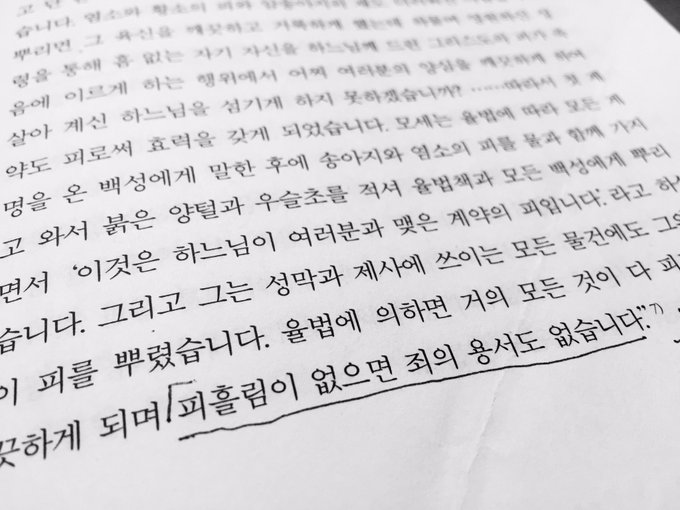 습니다. 염소와 황소의 피와 암송아지의
뿌리면 그 육신을 깨끗하고 거룩하게 했는데 하물며 영원하신 성
령을 통해 흠 없는 자기 자신을 하느님께 드린 그리스도의 피가 죽
음에 이르게 하는 행위에서 어찌 여러분의 양심을 깨끗하게 하여
살아 계신 하느님을 섬기게 하지 못하겠습니까? ……따라서 첫 계
약도 피로써 효력을 갖게 되었습니다. 모세는 율법에 따라 모든 계
명을 온 백성에게 말한 후에 송아지와 염소의 피를 물과 함께 가지
고 와서 붉은 양털과 우슬초를 적셔 율법책과 모든 백성에게 뿌리
면서 ‘이것은 하느님이 여러분과 맺은 계약의 피입니다.’라고 하
습니다. 그리고 그는 성막과 제사에 쓰이는 모든 물건에도 그와
이 피를 뿌렸습니다. 율법에 의하면 거의 모든 것이 다 피
끗하게 되며 피흘림이 없으면 죄의 용서도 없습니다.”7)